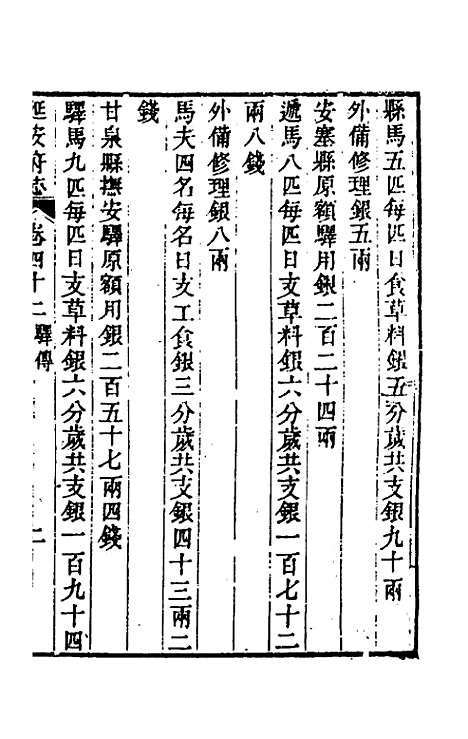 縣馬五匹每匹日食草料銀五分歲共支銀九十兩
外備修理銀五兩
安塞縣原額驛用銀二百二十四兩
遞馬八匹每匹日支草料銀六分歲共支銀一百七十二
兩八錢
外備修理銀八兩
馬夫四名每名日支工食銀三分歲共支銀四十三兩二
錢
甘泉縣撫安驛原額用銀二百五十七兩四錢
驛馬九匹每匹日支草料銀六分歲共支銀一百九十四
延安府志 卷四十二 驛傳 二